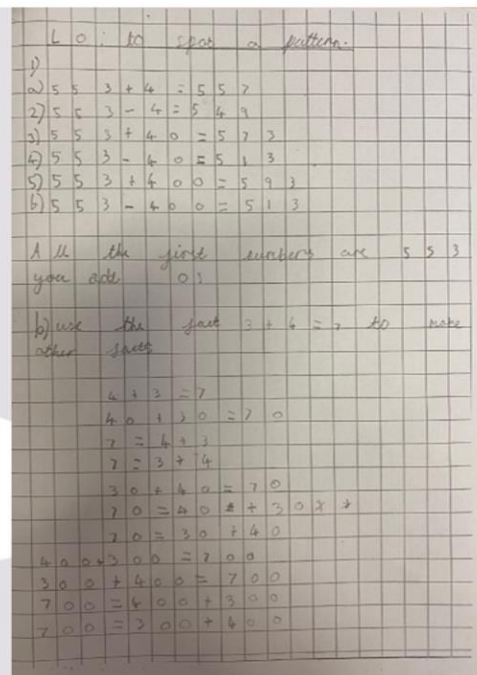 LO: to spot a pattern.
1)
a) 553 + 4 = 557
2) 553 - 4 = 549
3) 553 + 40 = 573
4) 553 - 40 = 513
5) 553 + 400 = 593
6) 553 - 400 = 513
All the first numbers are 553
you add
b) use the fact 3 + 4 = 7 to make
other facts
4 + 3 = 7
40 + 30 = 70
7 = 4 + 3
7 = 3 + 4
30 + 40 = 70
70 = 40 + 30
70 = 30 + 40
400 + 300 = 700
300 + 400 = 700
700 = 400 + 300
700 = 300 + 400